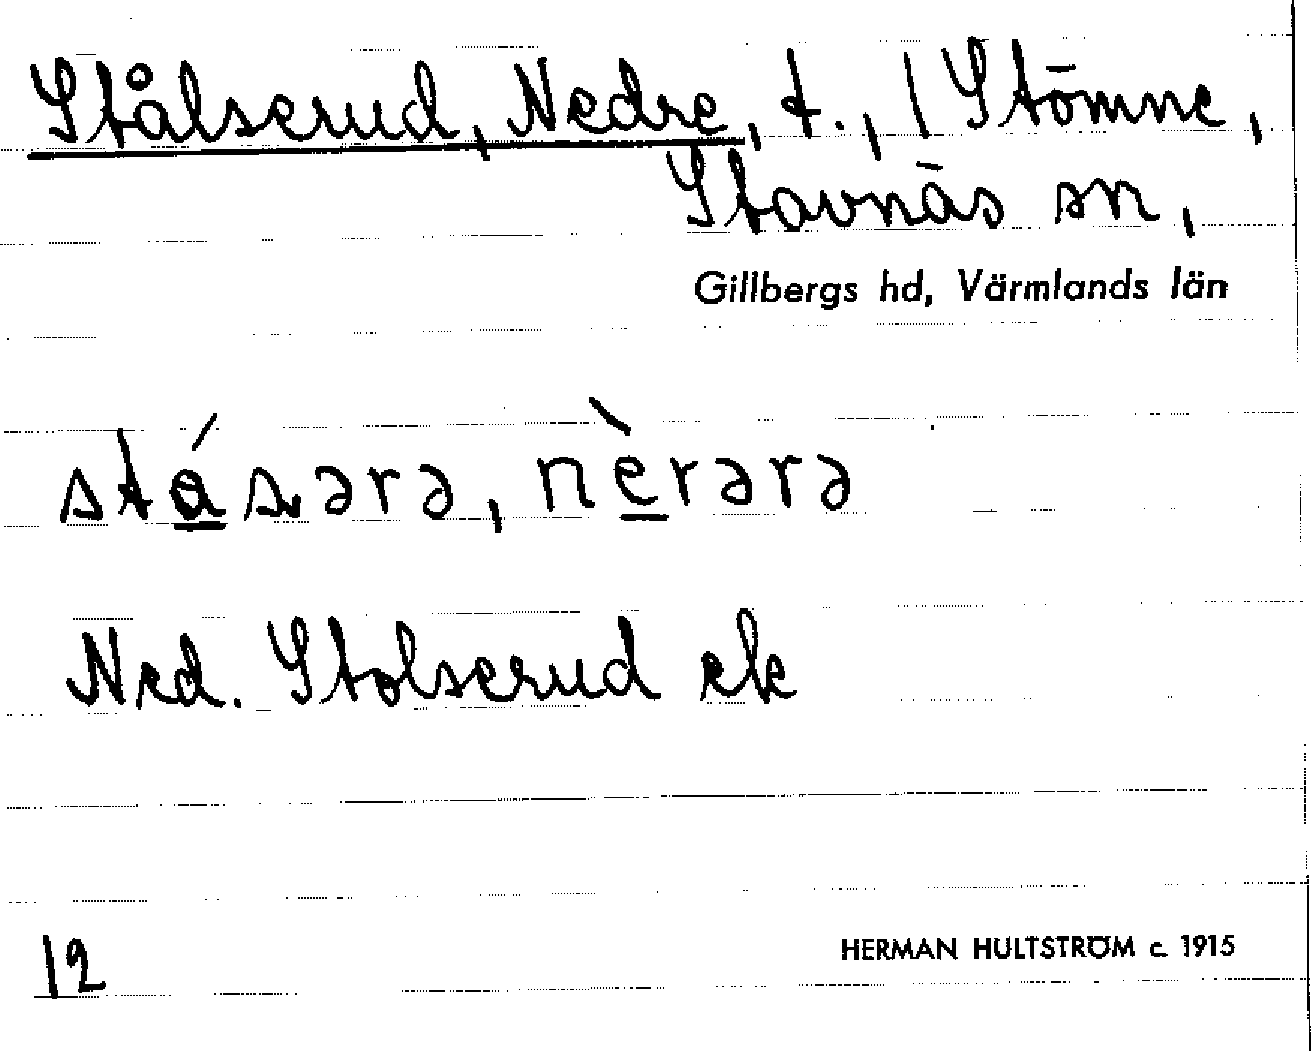 Stålserud, Nedre, t., / Stömne,
Stavnäs sn,
Gillbergs hd, Värmlands län
stásərə, nèrərə
Ned. Stolserud ek
12
HERMAN HULTSTRÖM c. 1915